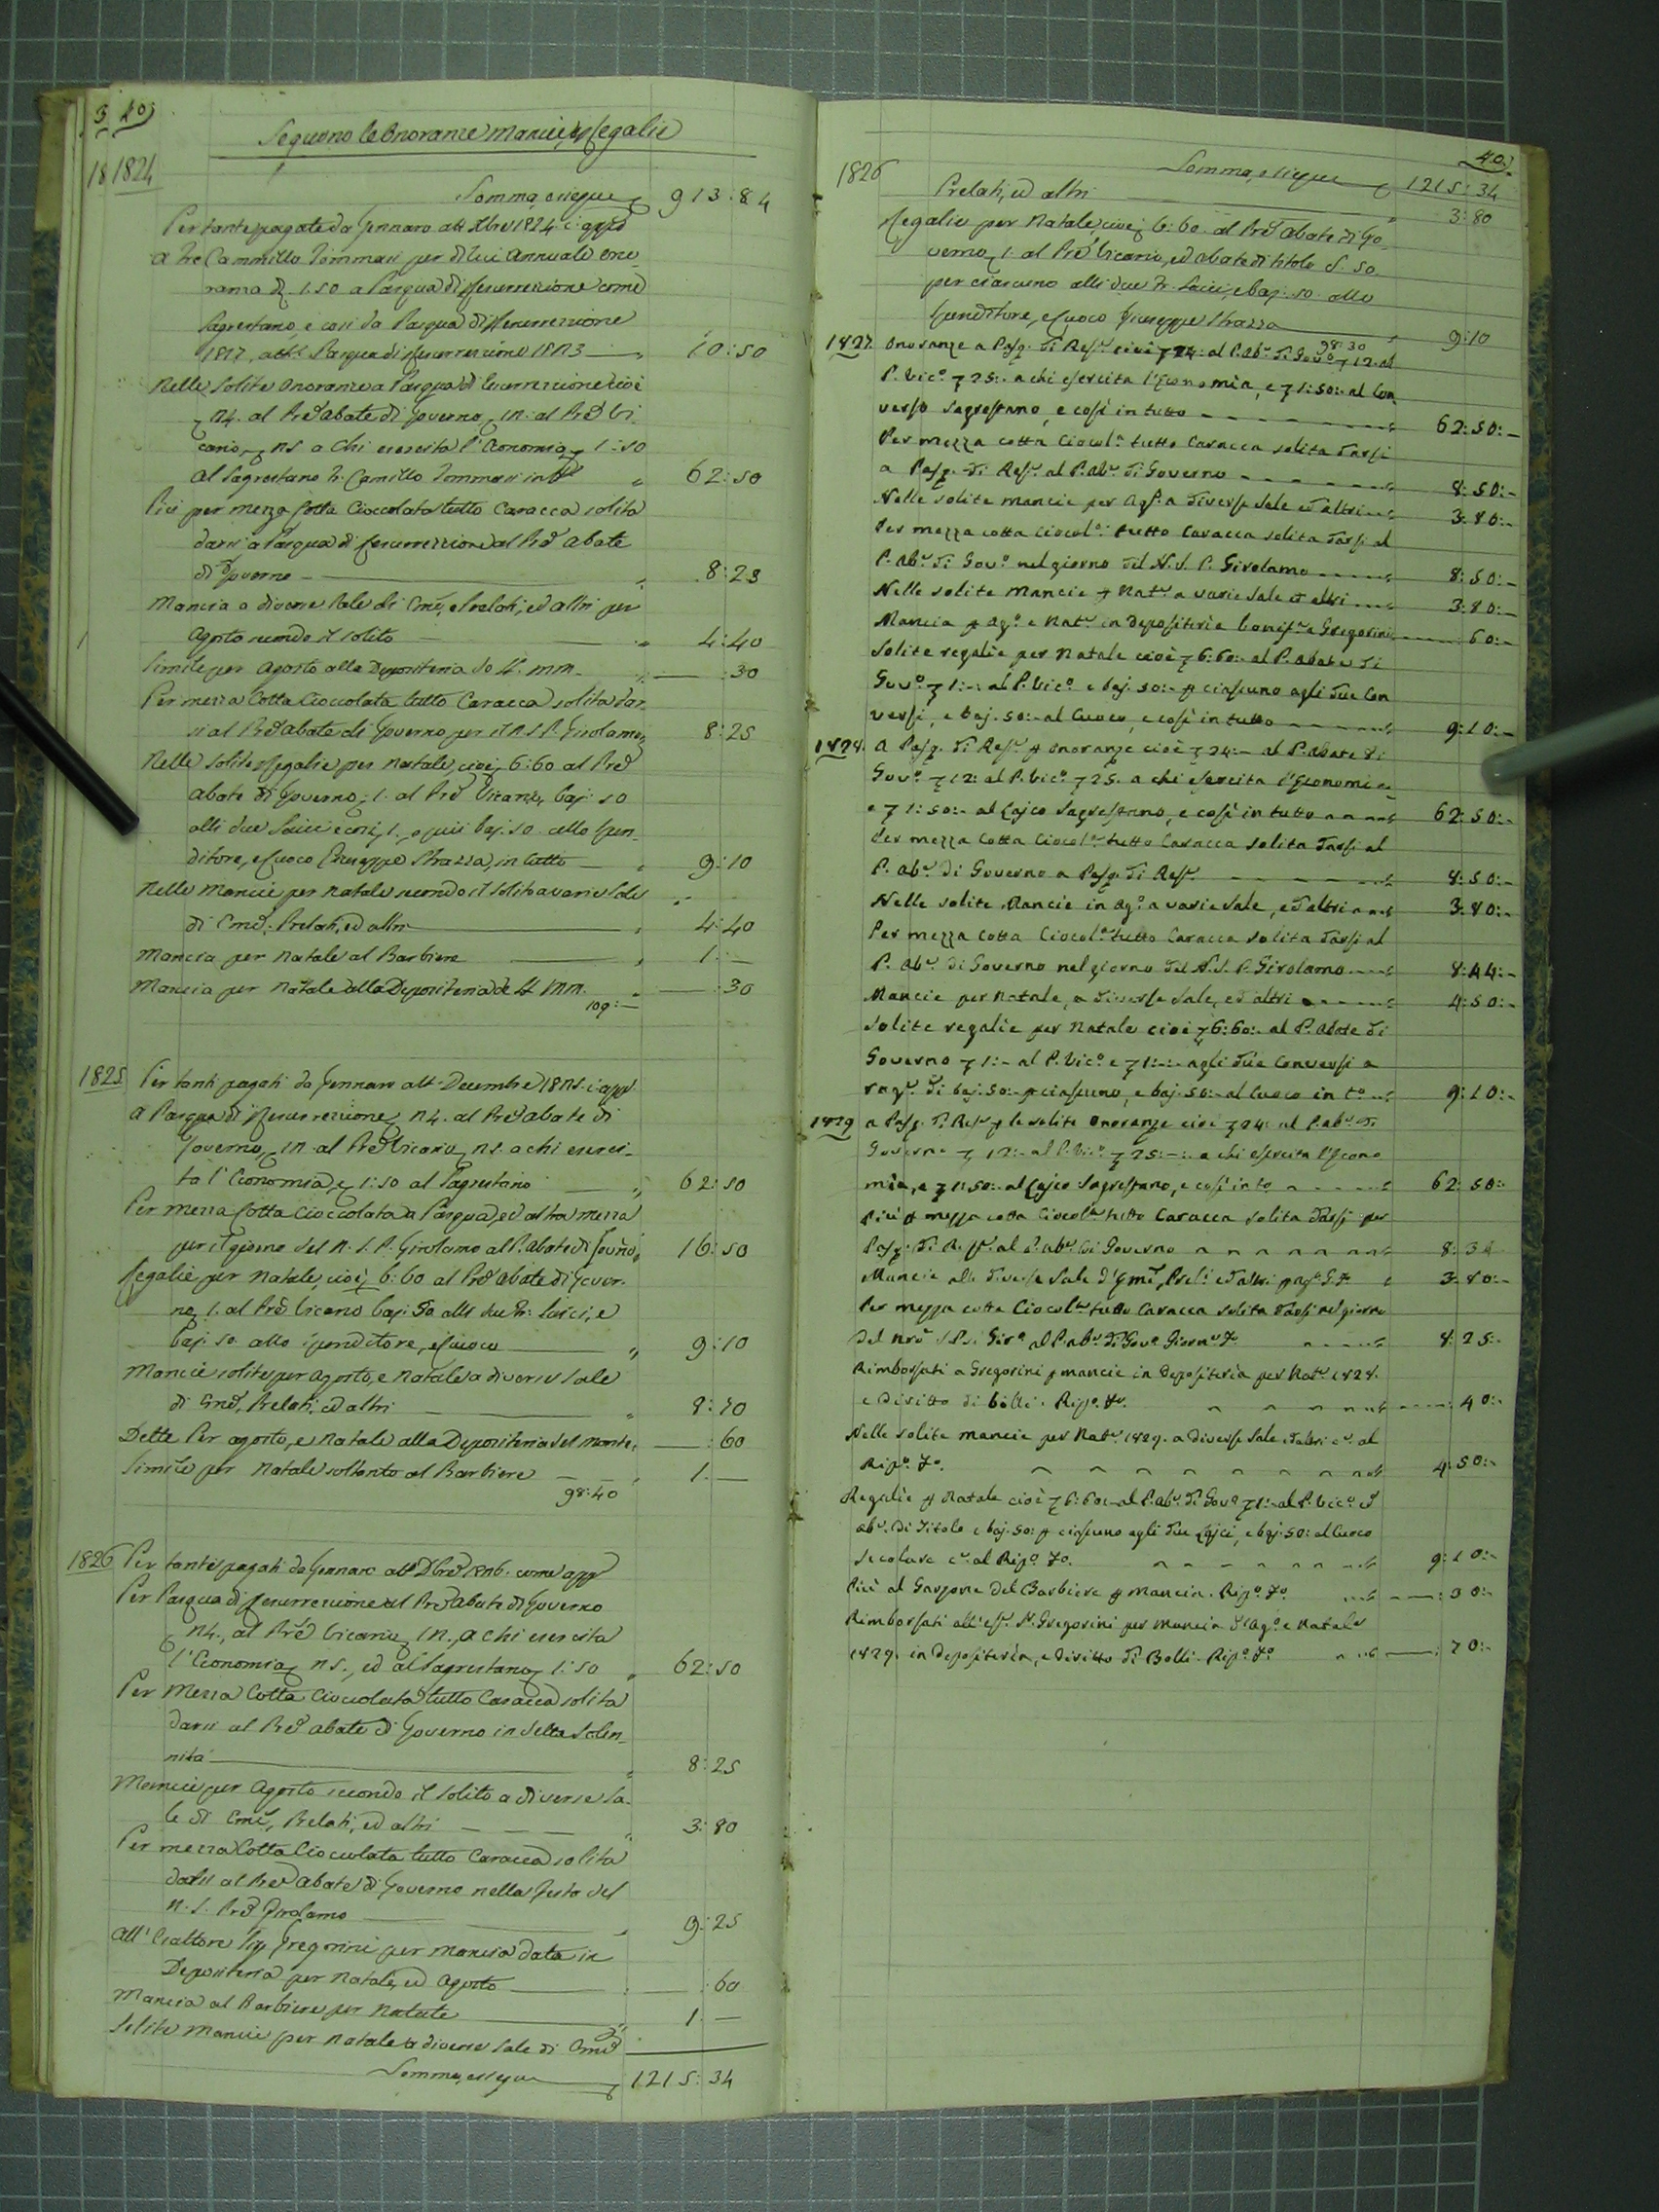 3 40
Seguono le Onoranze mancie, e Regalie
18 1824
Somma, e siegue 913:84
Per tante pagate da Gennaro att. Xbre 1824 c: appo
a Fre Cammillo Tommasi per di lui annuale ono-
ranza di 1.50 a Pasqua di Resurrezione come
Sagrestano, e così da Pasqua di Resurrezione
1817, att. Pasqua di Resurrezione 1823 10:50
Nelle solite Onoranze a Pasqua di Resurrezione cioè
24. al Pre Abate di Governo, 12: al Pre Vi-
cario, 25 a chi esercita l'Economia, 1:50
al Sagrestano fr. Camillo Tommasi in tto 62:50
Più per mezza Cotta Cioccolata tutto Caracca solita
darsi a Pasqua di Resurrezione al Pre Abate
di Governo 8:25
Mancia a diverse Sale di Emi, Prelati, ed altri per
Agosto secondo il solito 4:40
Simile per Agosto alla Depositeria :30
Per mezza Cotta Cioccolata tutto Caracca solita dar-
si al Pre Abate di Governo per il N. S. P. Girolamo 8:25
Nelle solite Regalie per Natale, cioè 6:60 al Pre
Abate di Governo, 1. al Pre Vicario, baj: 50
alli due Laici e così 1., e più baj. 50. allo Spen-
ditore, e Cuoco Giuseppe Strazza, in tutto 9:10
Nelle Mancie per Natale secondo il solito a varie Sale
di Emi: Prelati, ed altri 4:40
Mancia per Natale al Barbiere 1:—
Mancia per Natale alla Depositeria :30
109:—
1825 Per tanti pagati da Gennaro att. Decembre 1825. c: appo
a Pasqua di Resurrezione, 24. al Pre Abate di
Governo, 12 al Pre Vicario, 25. a chi eserci-
ta l'Economia, e 1:50 al Sagrestano 62:50
Per mezza Cotta Cioccolata a Pasqua, ed altra mezza
per il giorno del N. S. P. Girolamo al P. Abate di Govno 16:50
Regalie per Natale, cioè 6:60 al Pre Abate di Gover-
no, 1. al Pre Vicario baj: 50 alli due Fr: Laici, e
baj. 50. allo spenditore, e Cuoco 9:10
Mancie solite per Agosto, e Natale a diverse Sale
di Emi, Prelati, ed altri
Dette Per agosto, e Natale alla Depositeria del Monte :60
Simile per Natale soltanto al Barbiere 1:—
98:40
1826 Per tante pagati da Gennaro att. Xbre 1826. come appo
Per Pasqua di Resurrezione al Pre Abate di Governo
24., al Pre Vicario, 12., a chi esercita
l'Economia, 25., ed al Sagrestano, 1:50 62:50
Per Mezza Cotta Cioccolata tutto Caracca solita
darsi al Pre Abate di Governo in detta Solen-
nità 8:25
Mancie per Agosto secondo il solito a diverse Sa-
le di Emi, Prelati, ed altri 3:80
Per mezza Cotta Cioccolata tutto Caracca solita
darsi al Pre Abate di Governo nella Festa del
N. S. Pre Girolamo 9:25
All' Esattore Gregorini per Mancia data in
Depositeria per Natale, ed Agosto :60
Mancia al Barbiere per Natale 1:—
Solite Mancie per Natale a diverse Sale di Emi
Somma, e siegue 1215:34
40.
1826 Somma, e siegue 1215:34
Prelati, ed altri 3:80
Regalie per Natale, cioè, 6:60. al Pre Abate di Go-
verno, 1. al Pre Vicario, ed Abate di titolo :50
per ciascuno alli due Fr. Laici, e baj: 50. allo
Spenditore, e Cuoco Giuseppe Strazza 9:10
98:30
1827. Onoranze a Pasq. di Resne cioè 24: al P. Abe di Govo 12. al
P. Vico 25:- a chi esercita l'Economia, e 1:50:- al Con-
verso Sagrestano, e così in tutto 62:50:-
Per mezza cotta Ciocola tutto Caracca solita darsi
a Pasq. di Resne al P. Abe di Governo 8:50:-
Nelle solite mancie per Ago a diverse Sale ed altri 3:80:-
Per mezza cotta Ciocola tutto Caracca solita darsi al
P. Abe di Govo nel giorno del N. S. P. Girolamo 8:50:-
Nelle solite Mancie p Nate a varie Sale ed altri 3:80:-
Mancia p Ago e Nate in Depositeria Gregorini 60:-
Solite regalie per Natale cioè 6:60:- al P. Abate di
Govo 1:- al P. Vico e baj. 50:- p ciascuno agli due Con-
versi, e baj. 50:- al Cuoco, e così in tutto 9:10:-
1828. a Pasq. di Resne p Onoranze cioè 24:- al P. Abate di
Govo 12: al P. Vico 25. a chi esercita l'Economia
e 1:50:- al Laico Sagrestano, e così in tutto 62:50:-
Per mezza Cotta Ciocola tutto Caracca solita darsi al
P. Abe di Governo a Pasq. di Resne 8:50:-
Nelle solite Mancie in Ago a varie Sale, ed altri 3:80:-
Per mezza Cotta Ciocola tutto Caracca solita darsi al
P. Abe di Governo nel giorno del N. S. P. Girolamo 8:44:-
Mancie per Natale, a diverse Sale, ed altri 4:50:-
Solite regalie per Natale cioè 6:60:- al P. Abate di
Governo 1:- al P. Vico e 1:-:- agli due Conversi a
rage di baj. 50:- p ciascuno, e baj. 50:- al Cuoco in to 9:10:-
1829 a Pasq. di Resne p le solite Onoranze cioè 24: al P. Abe di
Governo 12:- al P. Vico 25:-:- a chi esercita l'Econo-
mia, e 1:50:- al Laico Sagrestano, e così in to 62:50:-
Più p mezza cotta Ciocola tutto Caracca solita darsi per
Pasq. di Resne al P. Abe di Governo
Mancie alle diverse Sale d'Emi, Preli ed altri 3:80:-
Per mezza cotta Ciocola tutto Caracca solita darsi nel giorno
del Nro S. P. Giro al P. Abe di Govo 8:25:-
Rimborsati a Gregorini p mancie in Depositeria per Nate 1828.
e Diritto di bolli. Ripo 40:-
Nelle solite mancie per Nate 1829. a diverse Sale ed altri ce al
Ripo 4:50:-
Regalie p Natale cioè 6:60:- al P. Abe di Govo 1:- al P. Vico ed
Abe di Titolo e baj. 50: p ciascuno agli due Laici, e baj. 50: al Cuoco
Secolare ce al Ripo 9:10:-
Più al Garzone del Barbiere p Mancia. Ripo 30:-
Rimborsati all'Esre Gregorini per Mancia d'Ago e Natale
1829. in Depositeria, e Diritto di Bolli. Ripo 70:-